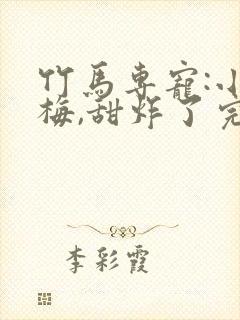 竹馬専寵:小
梅,甜炸了完
李彩霞